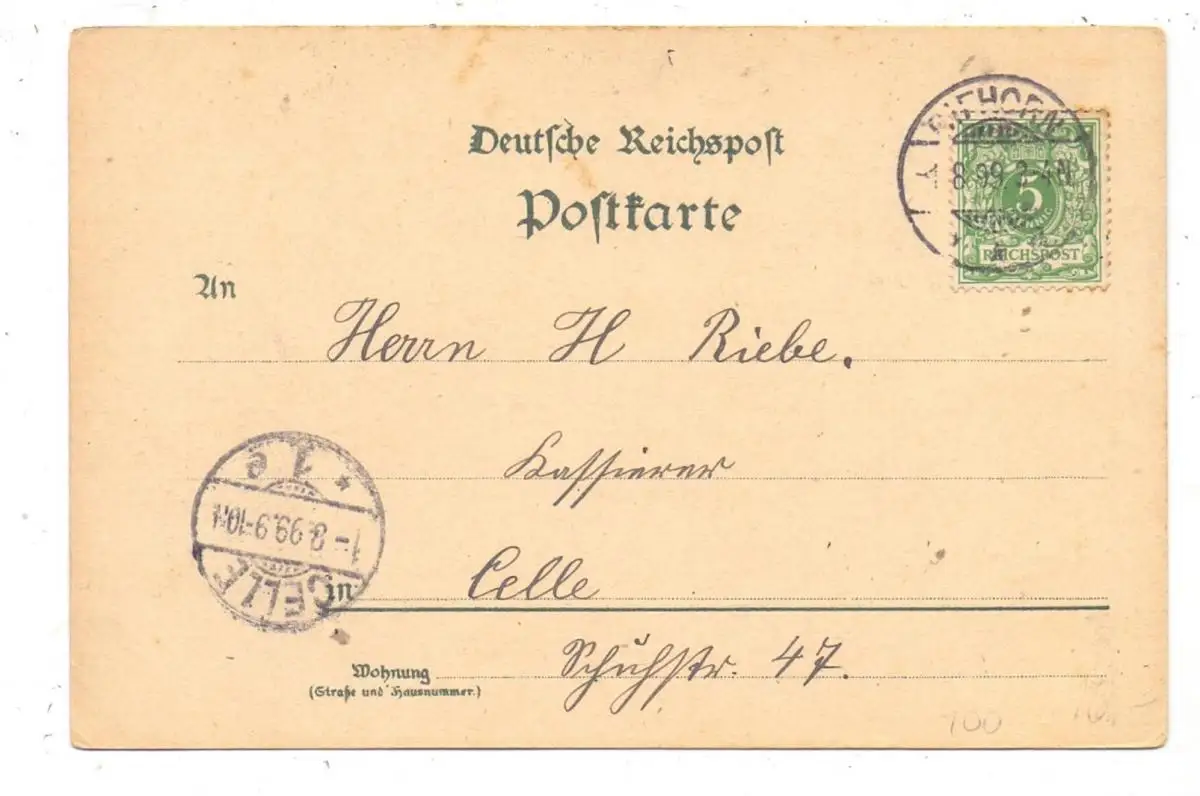 Deutsche Reichspost
Postkarte
GIFHORN
8 99
5
REICHSPOST
An
Herrn H Riebe.
Kassierer
* 1 e
1-8.99.9-10N
CELLE
in Celle
Schuhstr. 47.
Wohnung
(Straße und Hausnummer.)
100